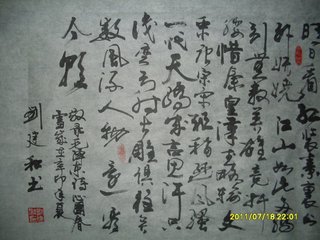 日看红装素裹
外妖娆江山如此多
引無数英雄竞折
腰惜秦皇漢武略输文
采唐宗宋祖稍逊风骚
一代天骄成吉思汗只
识弯弓射大雕俱往矣
数风流人物还看
今朝
毛泽东诗沁园春
雪岁在辛卯年夏
刘建和书
2011/07/18 22:01